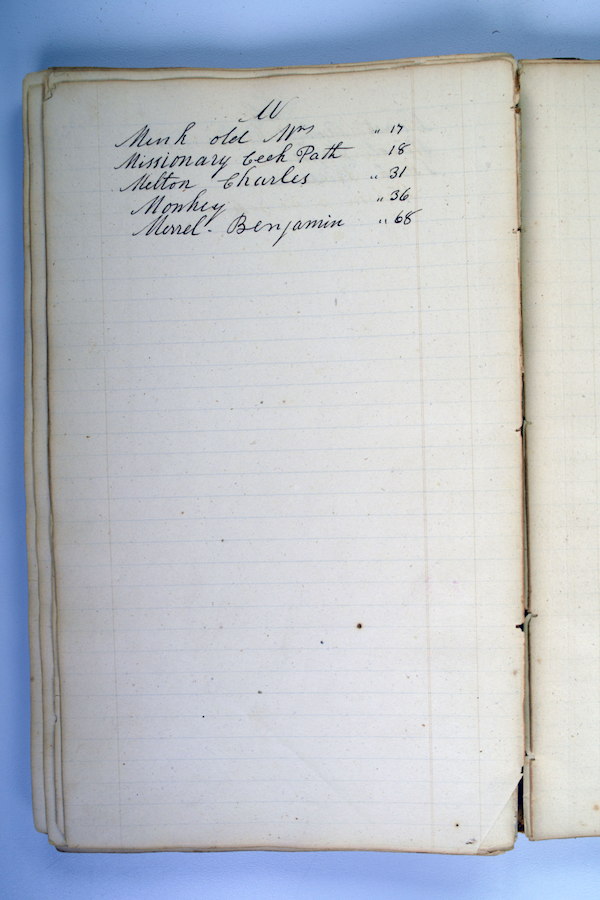 M
Mink old Mrs " 17
Missionary Ceek Path 18
Melton Charles " 31
Monkey " 36
Merrel - Benjamin " 68